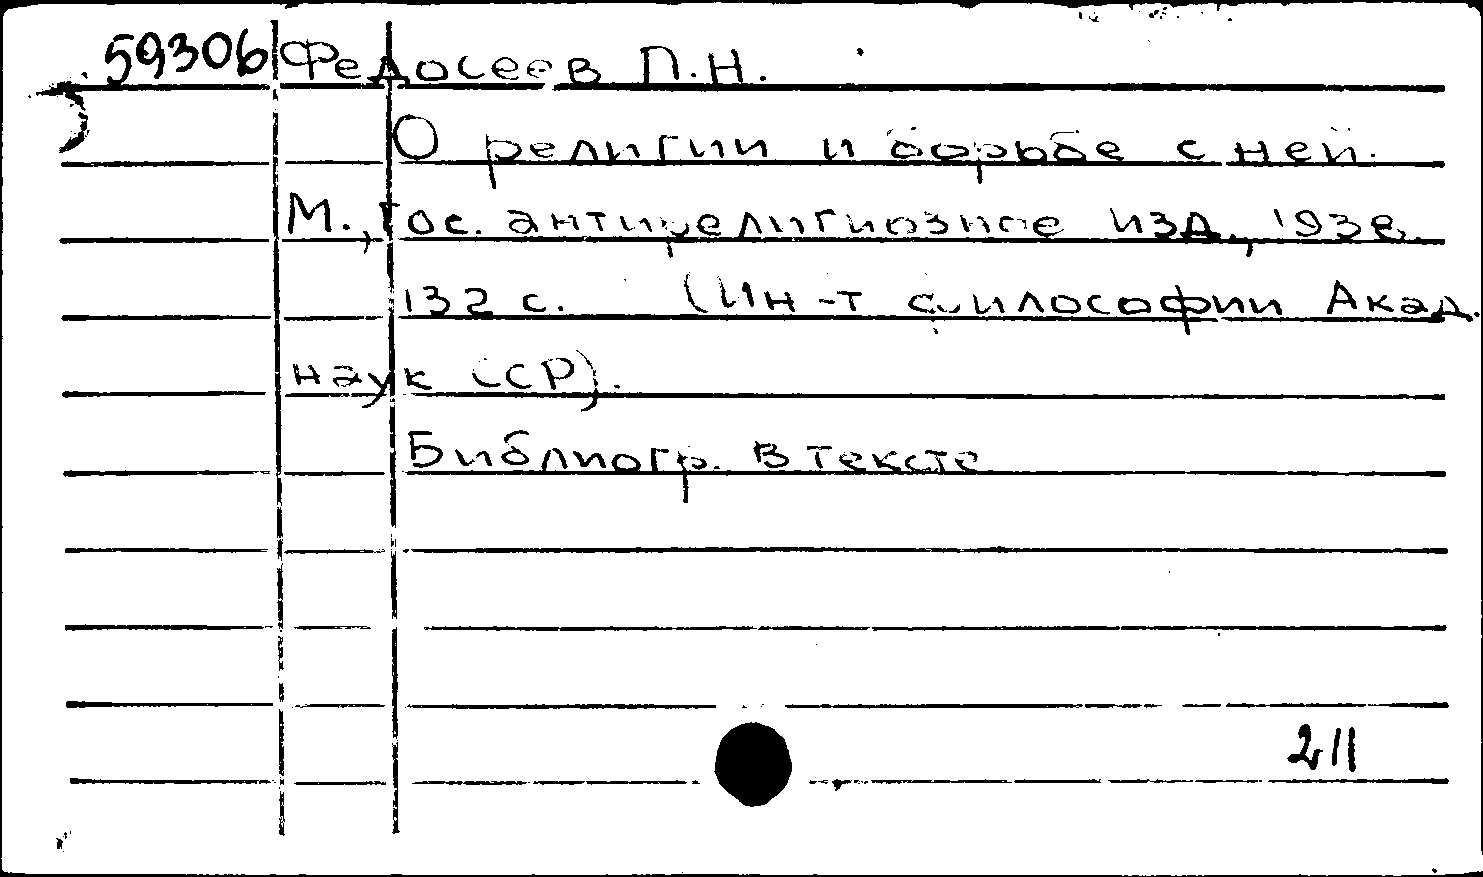 59306 Федосеев П.Н.
О религии и борьбе с ней.
М., Гос. антирелигиозное изд.,
132 с. (Ин-т философии Акад.
наук ССР).
Библиогр. в тексте
211